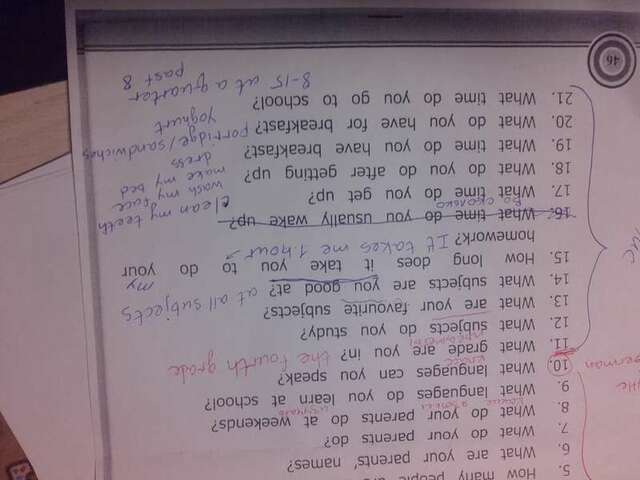 5. How many people are
6. What are your parents' names?
7. What do your parents do?
8. What do your parents do at weekends?
9. What languages do you learn at school?
10. What languages can you speak?
11. What grade are you in? the fourth grade
12. What subjects do you study?
13. What are your favourite subjects?
14. What subjects are you good at? at all subjects
15. How long does it take you to do your my
homework? It takes me 1 hour →
16. What time do you usually wake up?
17. What time do you get up?
18. What do you do after getting up? clean my teeth
wash my face
make my bed
dress
19. What time do you have breakfast?
20. What do you have for breakfast? porridge/sandwiches
yoghurt
21. What time do you go to school?
8-15 at a quarter
past 8
German
46